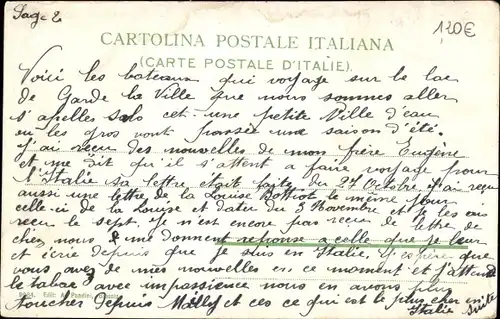 Page 2
120€
CARTOLINA POSTALE ITALIANA
(CARTE POSTALE D'ITALIE).
Voici les bateaux qui voyage sur le lac
de Garde la Ville que nous sommes aller
s'apelles salo cet une petite Ville d'eau
ou les gros vont passée une saison d'été.
J'ai reçu des nouvelles de mon frère Eugène
et me dit qu'il s'attent a faire voyage pour
l'Italie sa lettre était faite du 27 Octobre. J'ai reçu
aussi une lettre de la Louise le même jour
celle-ci de la Louise et dater du 3 Novembre et je les ais
reçu le sept. Je n'est encore pas reçu de lettre de
chez nous me donnent reponse a celle que je leur
et écrie depuis que je suis en Italie. J'espère que
vous avez de mes nouvelles en ce moment et j'attend
le tabac avec impassience nous en avons plus
toucher depuis et ces ce qui est le plus cher en
Italie suite
Edit. A.